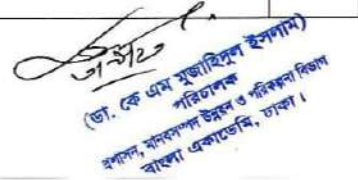 (ডা. কে এম মুজাহিদুল ইসলাম)
পরিচালক
প্রশাসন, মানবসম্পদ উন্নয়ন ও পরিকল্পনা বিভাগ
বাংলা একাডেমি, ঢাকা।